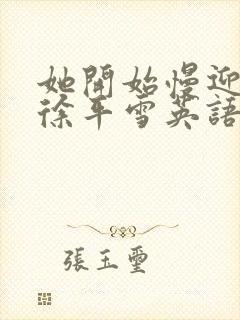 她開始慢迎
徐平雪英語
張玉璽